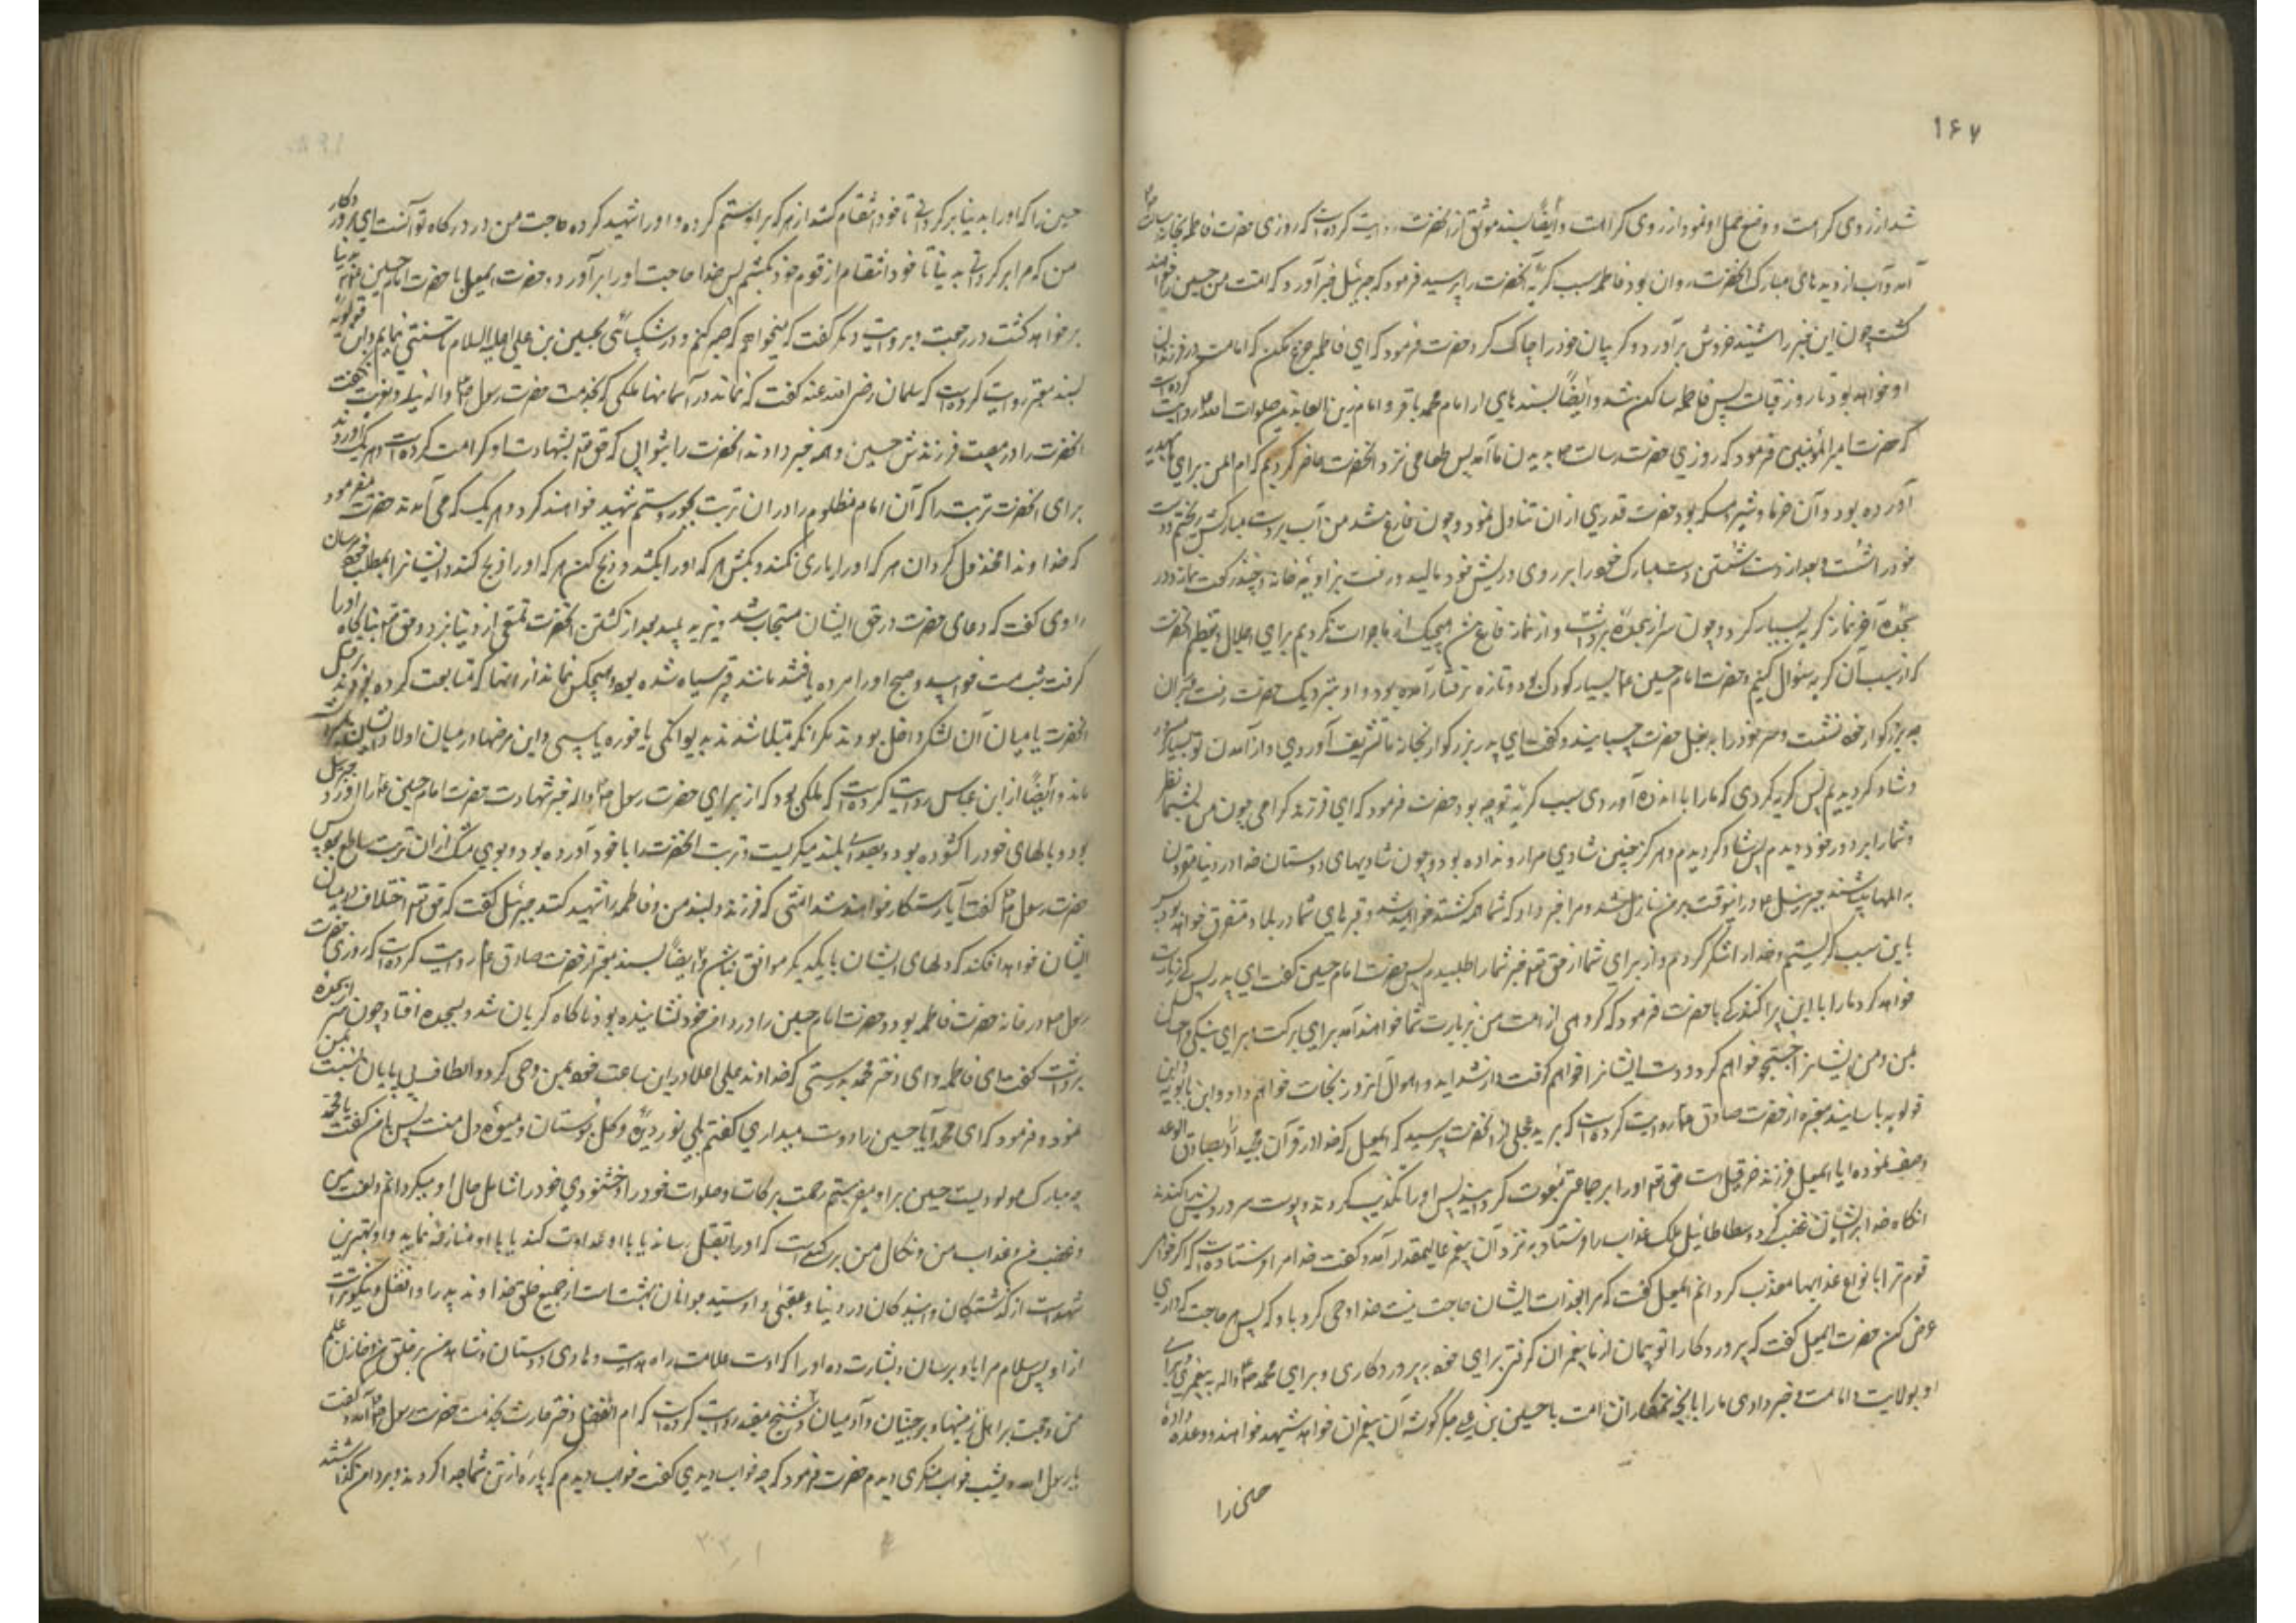 ۱۶۷
شد از روی کراهت و وضع حمل او نمود از روی کراهت و ایضاً بسند موثق از آنحضرت روایت کرده است که روزی حضرت فاطمه بخانه
آمد و آب از دیدهای مبارک آنحضرت روان بود فاطمه سبب گریه آنحضرت را پرسید فرمود که جبرئیل خبر آورد که امت من حسین را خواهند
کشت چون این خبر را شنید خروش برآورد و گریبان خود را چاک کرد حضرت فرمود که ای فاطمه جزع مکن که امامت در فرزندان
او خواهد بود تا روز قیامت پس فاطمه ساکن شد و ایضاً بسندهای از امام محمد باقر و امام زین العابدین صلوات الله روایت کرده است
که حضرت امیر المؤمنین فرمود که روزی حضرت رسالت بدیدن ما آمد پس طعامی نزد آنحضرت حاضر کردیم که ام ایمن برای ما هدیه
آورده بود و آن خرما و شیر و مسکه بود حضرت قدری از ان تناول نمود و چون فارغ شد من آب بر دست مبارکش ریختم و دست
خود را شست و بعد از دست شستن دست مبارک خود را بر روی و ریش خود مالید و رفت بزاویه خانه و چند رکعت نماز و در
سجده آخر نماز گریه بسیار کرد و چون سر از سجده برداشت و از نماز فارغ شد هیچیک از ما جرات نکردیم برای اجلال و تعظیم آنحضرت
که از سبب آن گریه سؤال کنیم و حضرت امام حسین بسیار کودک بود و تازه برفتار آمده بود و او بنزدیک حضرت رفت بر ران
جد بزرگوار خود نشست و سر خود را به بغل حضرت چسبانید و گفت ای پدر بزرگوار بخانه ما تشریف آوردی و از آمدن تو بسیار مسرور
و شاد گردیدیم پس گریه کردی که ما را باندوه آوردی سبب گریه تو چه بود حضرت فرمود که ای فرزند گرامی چون من بشما نظر
و شما را بر دور خود دیدم پس شاد گردیدم و هرگز چنین شادی مرا رو نداده بود و چون شادیهای دوستان خدا در دنیا مقرون
به المها میباشند جبرئیل در اینوقت بر من نازل شد و مرا خبر داد که شما همه کشته خواهید شد و قبرهای شما در بلاد متفرق خواهد بود پس
باین سبب گریستم و خدا را شکر کردم و از برای شما از حق تعالی خبر شما را طلبیدم پس حضرت امام حسین گفت ای پدر پس که زیارت
خواهد کرد ما را با این پراکندگی ما حضرت فرمود که گروهی از امت من بزیارت شما خواهند آمد برای برکت و برای نیکی و احسان
بمن و من ایشانرا جستجو خواهم کرد و دست ایشانرا خواهم گرفت و از شداید و اهوال انروز نجات خواهم داد و ابن بابویه و ابن
قولویه باسانید معتبره از حضرت صادق روایت کرده است که برید عجلی از آنحضرت پرسید که اسمعیل که خدا در قرآن مجید او را بصادق الوعد
وصف نموده ایا اسمعیل فرزند حزقیل است حق تعالی او را بر جماعتی مبعوث گردانید پس او را تکذیب کردند و پوست سر و رویش را کندند
انگاه خدا بر ایشان غضب کرد و سطاطائیل ملک عذاب را فرستاد به نزد آن پیغمبر عالیمقدار آمد و گفت خدا مرا فرستاده است که اگر خواهی
قوم ترا بانواع عذابها معذب گردانم اسمعیل گفت که مرا بعذاب ایشان حاجت نیست خدا وحی کرد باو که پس هر حاجت که داری
عرض کن حضرت اسمعیل گفت که پروردگارا تو پیمان از ما پیغمبران گرفتی برای خود به پروردگاری و برای محمد واله به پیغمبری و برای
او بولایت و امامت و خبر دادی ما را بانچه ستمکاران امت با حسین بن علی جگر گوشه آن پیغمبران خواهند شهید خواهند و وعده داده
حسین را
حسین را که او را بدنیا برگردانی تا خود انتقام کشد از هر که بر او ستم کرده و او را شهید کرده حاجت من در درگاه تو آنست ای پروردگار
من که مرا برگردانی بدنیا تا خود انتقام از قوم خود بکشم پس خدا حاجت او را برآورد و حضرت اسمعیل با حضرت امام حسین بدنیا
بر خواهد گشت در رجعت و بروایت دیگر گفت که میخواهم که صبر کنم و در شکیبائی بحسین بن علی علیه السلام تاسی نمایم و ابن قولویه
بسند معتبر روایت کرده است که سلمان رضی الله عنه گفت که نماند در آسمانها ملکی که بخدمت حضرت رسول واله نیاید و تعزیت نگفت
آنحضرت را در مصیبت فرزندش حسین و همه خبر دادند آنحضرت را بثوابی که حق تعالی بشهادت او کرامت کرده است و هر یک آوردند
برای آنحضرت تربت را که آن امام مظلوم را در ان تربت بجور و ستم شهید خواهند کرد و هر یک که می آمدند حضرت میفرمود
که خداوندا مخذول گردان هر که او را یاری نکند و بکش هر که او را بکشد و ذبح کن هر که او را ذبح کند و ایشانرا بمطلب خود مرسان
راوی گفت که دعای حضرت در حق ایشان مستجاب شد و یزید پلید بعد از کشتن آنحضرت تمتعی از دنیا نبرد و حق تعالی بناگاه او را
گرفت شب مست خوابید و صبح او را مرده یافتند مانند قیر سیاه شده بود و هیچکس نماند از انها که متابعت کرده بودند بر قتل
آنحضرت یا میان آن لشکر داخل بودند مگر انکه مبتلا شدند بدیوانگی یا خوره یا پیسی و این مرضها در میان اولاد ایشان نیز
ماند و ایضاً از ابن عباس روایت کرده است که ملکی بود که از برای حضرت رسول واله خبر شهادت حضرت امام حسین را آورد جبرئیل
بود و بالهای خود را گشوده بود و بصدای بلند میگریست و تربت آنحضرت را با خود آورده بود و بوی مشک از ان تربت ساطع بود پس
حضرت رسول گفت آیا رستگار خواهند شد امتی که فرزند دلبند من و فاطمه را شهید کنند جبرئیل گفت که حق تعالی اختلاف در میان
ایشان خواهد افکند که دلهای ایشان با یکدیگر موافق نباشد و ایضاً بسند معتبر از حضرت صادق روایت کرده است که روزی حضرت
رسول در خانه حضرت فاطمه بود و حضرت امام حسین را در دامن خود نشانیده بود ناگاه گریان شد و بسجده افتاد چون سر از سجده
برداشت گفت ای فاطمه و ای دختر محمد بدرستی که خداوند علی اعلا در این ساعت خود بمن وحی کرد و الطاف بی پایان نسبت بمن
نمود و فرمود که ای محمد آیا حسین را دوست میداری گفتم بلی نور دیده و گل بوستان و میوه دل منست پس با من گفت یا محمد
چه مبارک مولودیست حسین بر او میفرستم رحمت برکات و صلوات خود را و خشنودی خود را شامل حال او میگردانم و لعنت من
و غضب من و عذاب من و نکال من بر کسی است که او را بقتل رساند یا با او عداوت کند یا با او منازعه نماید و او بهترین
شهداست از گذشتگان و آیندگان در دنیا و عقبی و او سید جوانان بهشت است از جمیع خلق خدا و پدر او افضل و نیکوتر است
از او پس سلام مرا باو برسان و بشارت ده او را که اوست علامت راه هدایت و هادی دوستان و شاهد من بر خلق من و خازن علم
من و حجت بر اهل زمینها و بر جنیان و آدمیان و شیخ مفید روایت کرده است که ام الفضل دختر حارث بخدمت حضرت رسول آمد و گفت
یا رسول الله دیشب خواب منکری دیدم حضرت فرمود که چه خواب دیدی گفت خواب دیدم که پاره از تن شما جدا کردند و بر دامن من گذاشتند